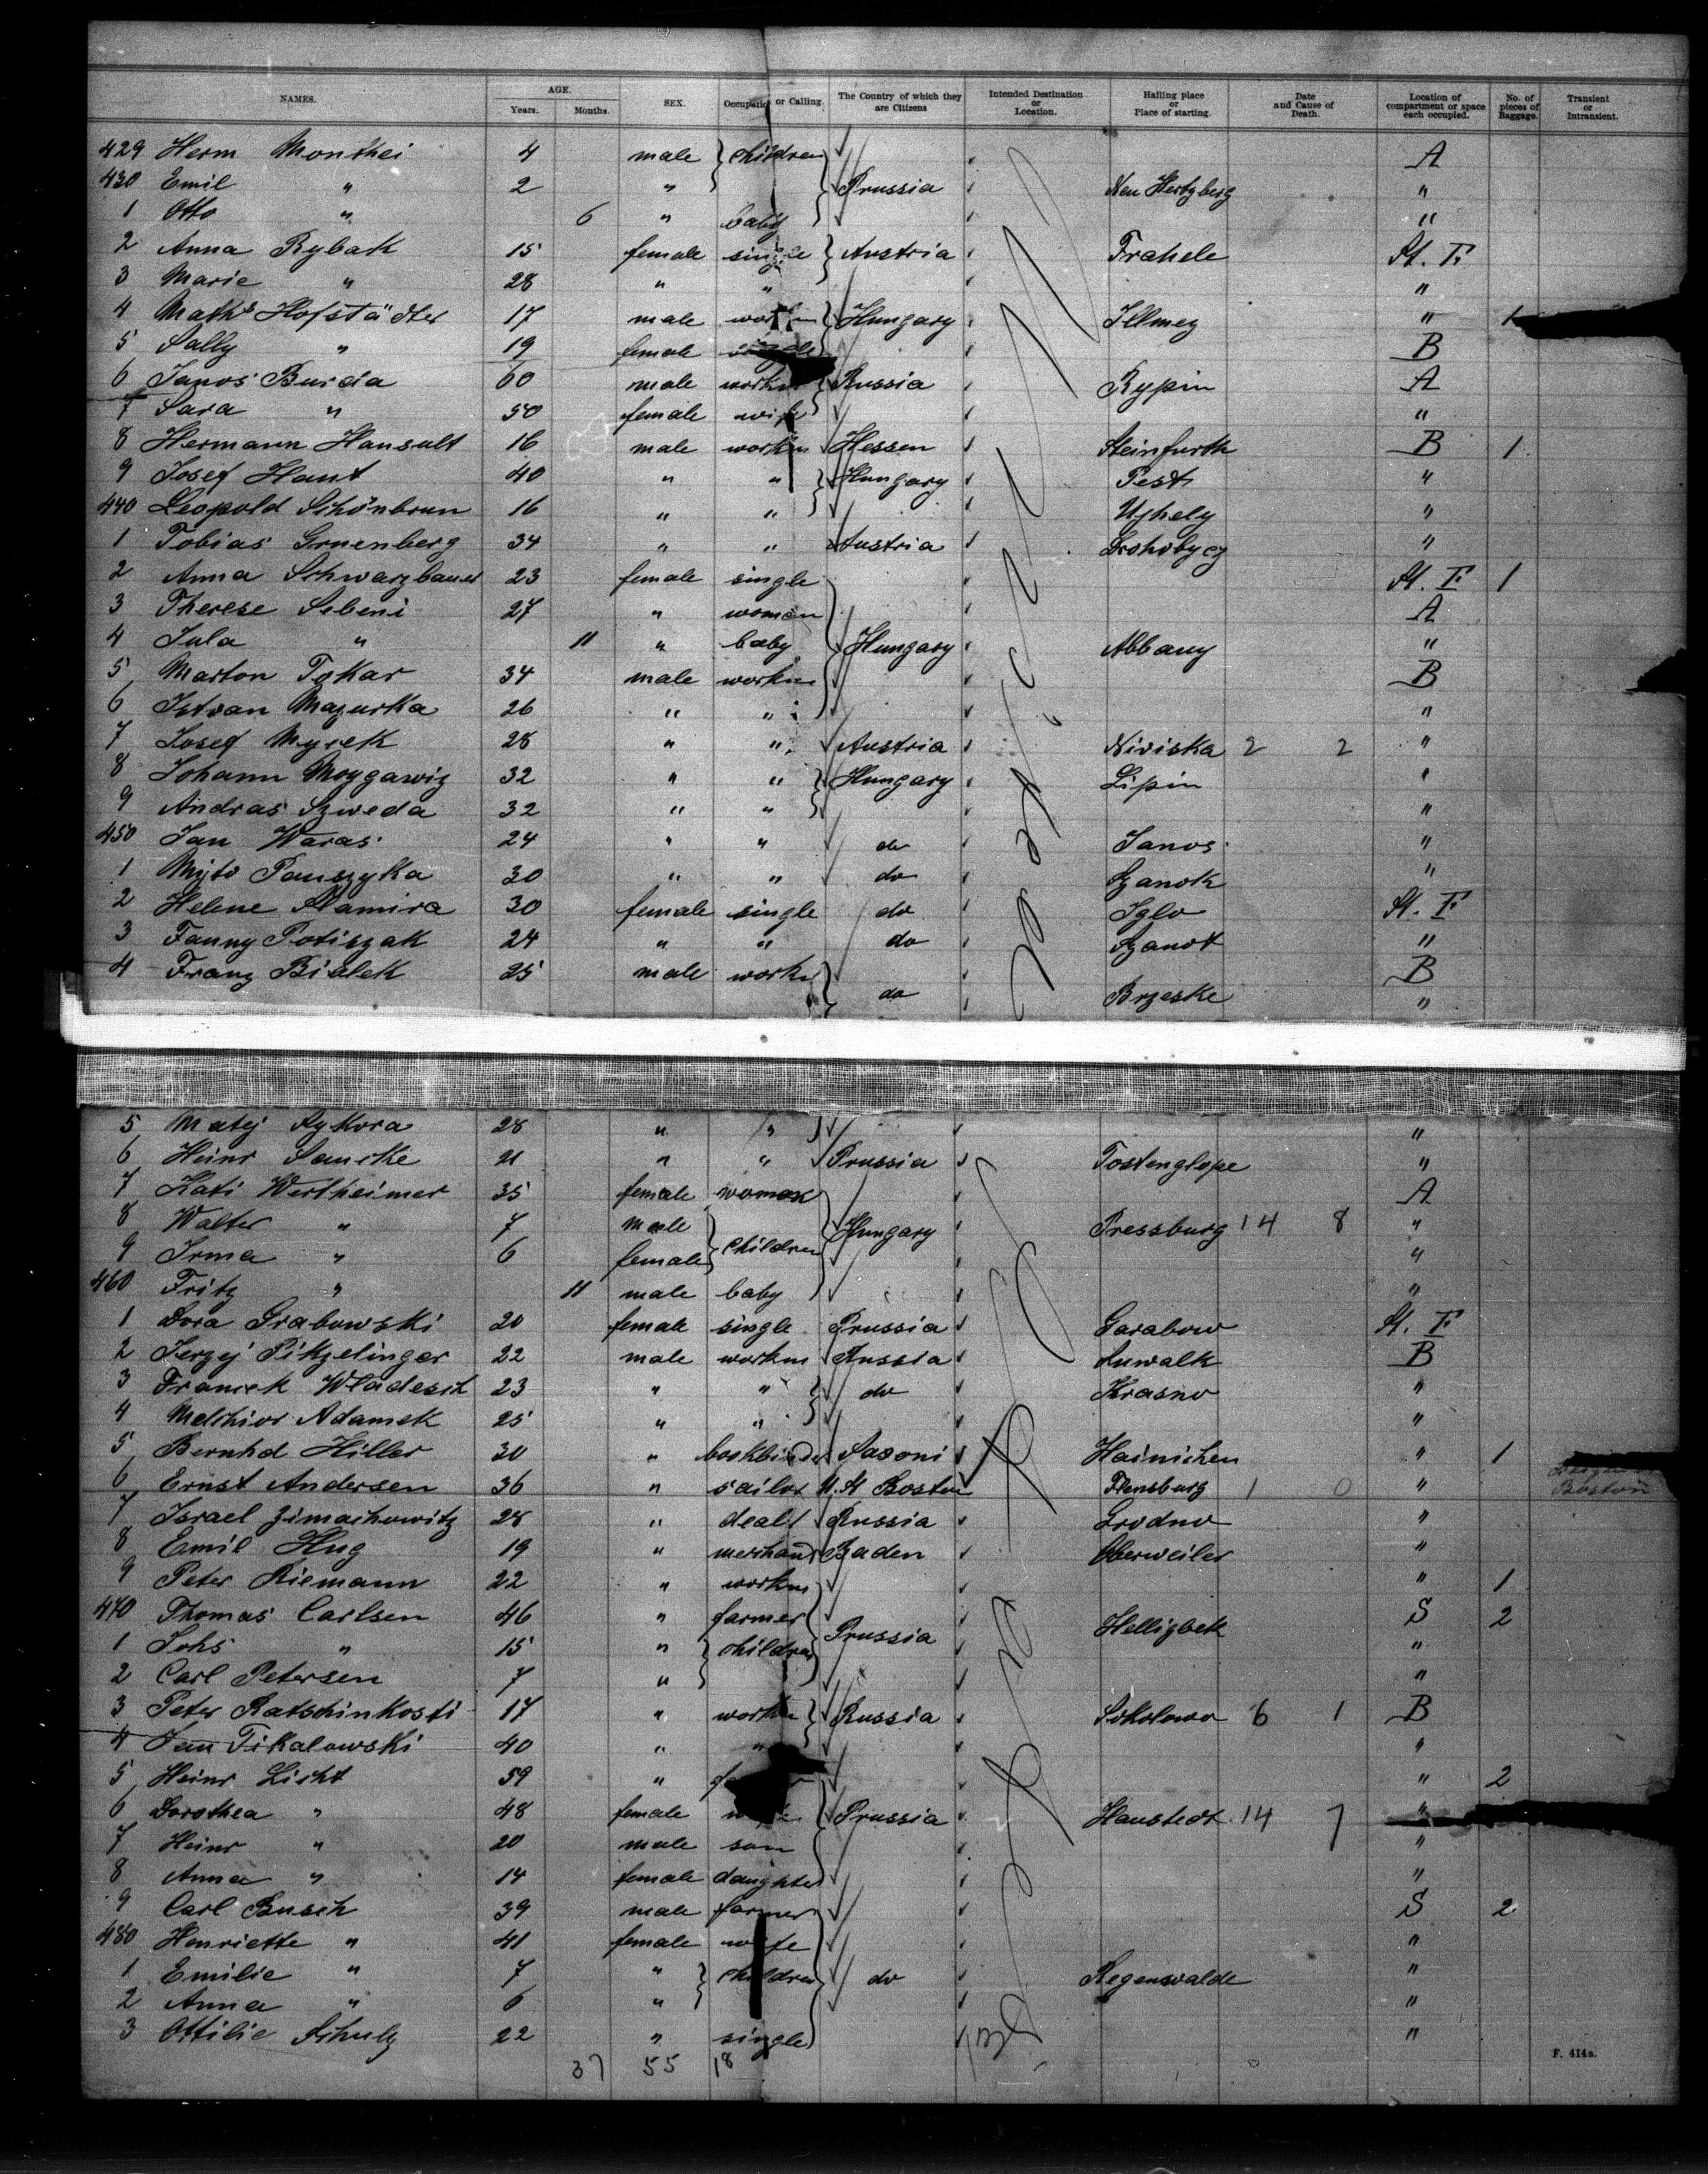 NAMES. AGE. Years. Months. SEX. Occupation or Calling. The Country of which they are Citizens Intended Destination or Location. Halling place or Place of starting. Date and Cause of Death. Location of compartment or space each occupied. No. of pieces of Baggage. Transient or Intransient.
429 Herm Monthei 4 male children A
430 Emil " 2 " Prussia Neu Hertzberg "
1 Otto " 6 " baby "
2 Anna Rybak 15 female single Austria Frahele St. F.
3 Marie " 28 " " "
4 Maths Hofstädter 17 male workm Hungary Illmez " 1
5 Sally " 19 female single B
6 Janos Burda 60 male workm Russia Rypin A
7 Sara " 50 female wife "
8 Hermann Hansult 16 male workm Hessen Steinfurth B 1
9 Josef Hant 40 " " Hungary Pest "
440 Leopold Schönbrun 16 " " Ujhely "
1 Tobias Gruenberg 34 " " Austria Drohobycz "
2 Anna Schwarzbauer 23 female single St. F. 1
3 Therese Sebeni 27 " woman A
4 Jula " 11 " baby Hungary Abbauy "
5 Marton Tokar 34 male workm B
6 Istvan Mazurka 26 " " "
7 Josef Myrek 28 " " Austria Niviska 2 2 "
8 Johann Moygawiz 32 " " Hungary Lipin "
9 Andras Szweda 32 " " "
450 Jan Waras 24 " " do Janos "
1 Myto Pauszyka 30 " " do Szanok "
2 Helene Stamira 30 female single do Iglo St. F.
3 Fanny Potiszak 24 " " do Szanot "
4 Franz Bialek 25 male workm B
do Brzeske "
5 Matej Sykora 28 " " "
6 Heinr Saucke 21 " " Prussia Tostenglope "
7 Kati Wertheimer 35 female woman A
8 Walter " 7 male children Hungary Pressburg 14 8 "
9 Irma " 6 female "
460 Fritz " 11 male baby "
1 Dora Grabowski 20 female single Prussia Garabow St. F.
2 Jerzej Pikzelinger 22 male workm Russia Suwalk B
3 Franek Wladesch 23 " " do Krasno "
4 Melchior Adamek 25 " " "
5 Bernhd Hiller 30 " bookbinder Saxoni Hainichen " 1
6 Ernst Andersen 36 " sailor U. St Boston Flensburg 1 0 " Boston
7 Israel Zimachowitz 28 " dealr Russia Grodno "
8 Emil Hug 19 " merchand Baden Oberweiler "
9 Peter Riemann 22 " workm " 1
470 Thomas Carlsen 46 " farmer Prussia Helligbek S 2
1 Johs " 15 " children "
2 Carl Petersen 7 " "
3 Peter Ratschinkosti 17 " workm Russia Sokolowo 6 1 B
4 Jan Tikalowski 40 " " "
5 Heinr Licht 59 " " 2
6 Dorothea " 48 female wife Prussia Hanstedt 14 7 "
7 Heinr " 20 male son "
8 Anna " 14 female daughter "
9 Carl Busch 39 male farmer S 2
480 Henriette " 41 female wife "
1 Emilie " 7 " children do Regenwalde "
2 Anna " 6 " "
3 Ottilie Schulz 22 " single "
37 55 18
F. 414a.